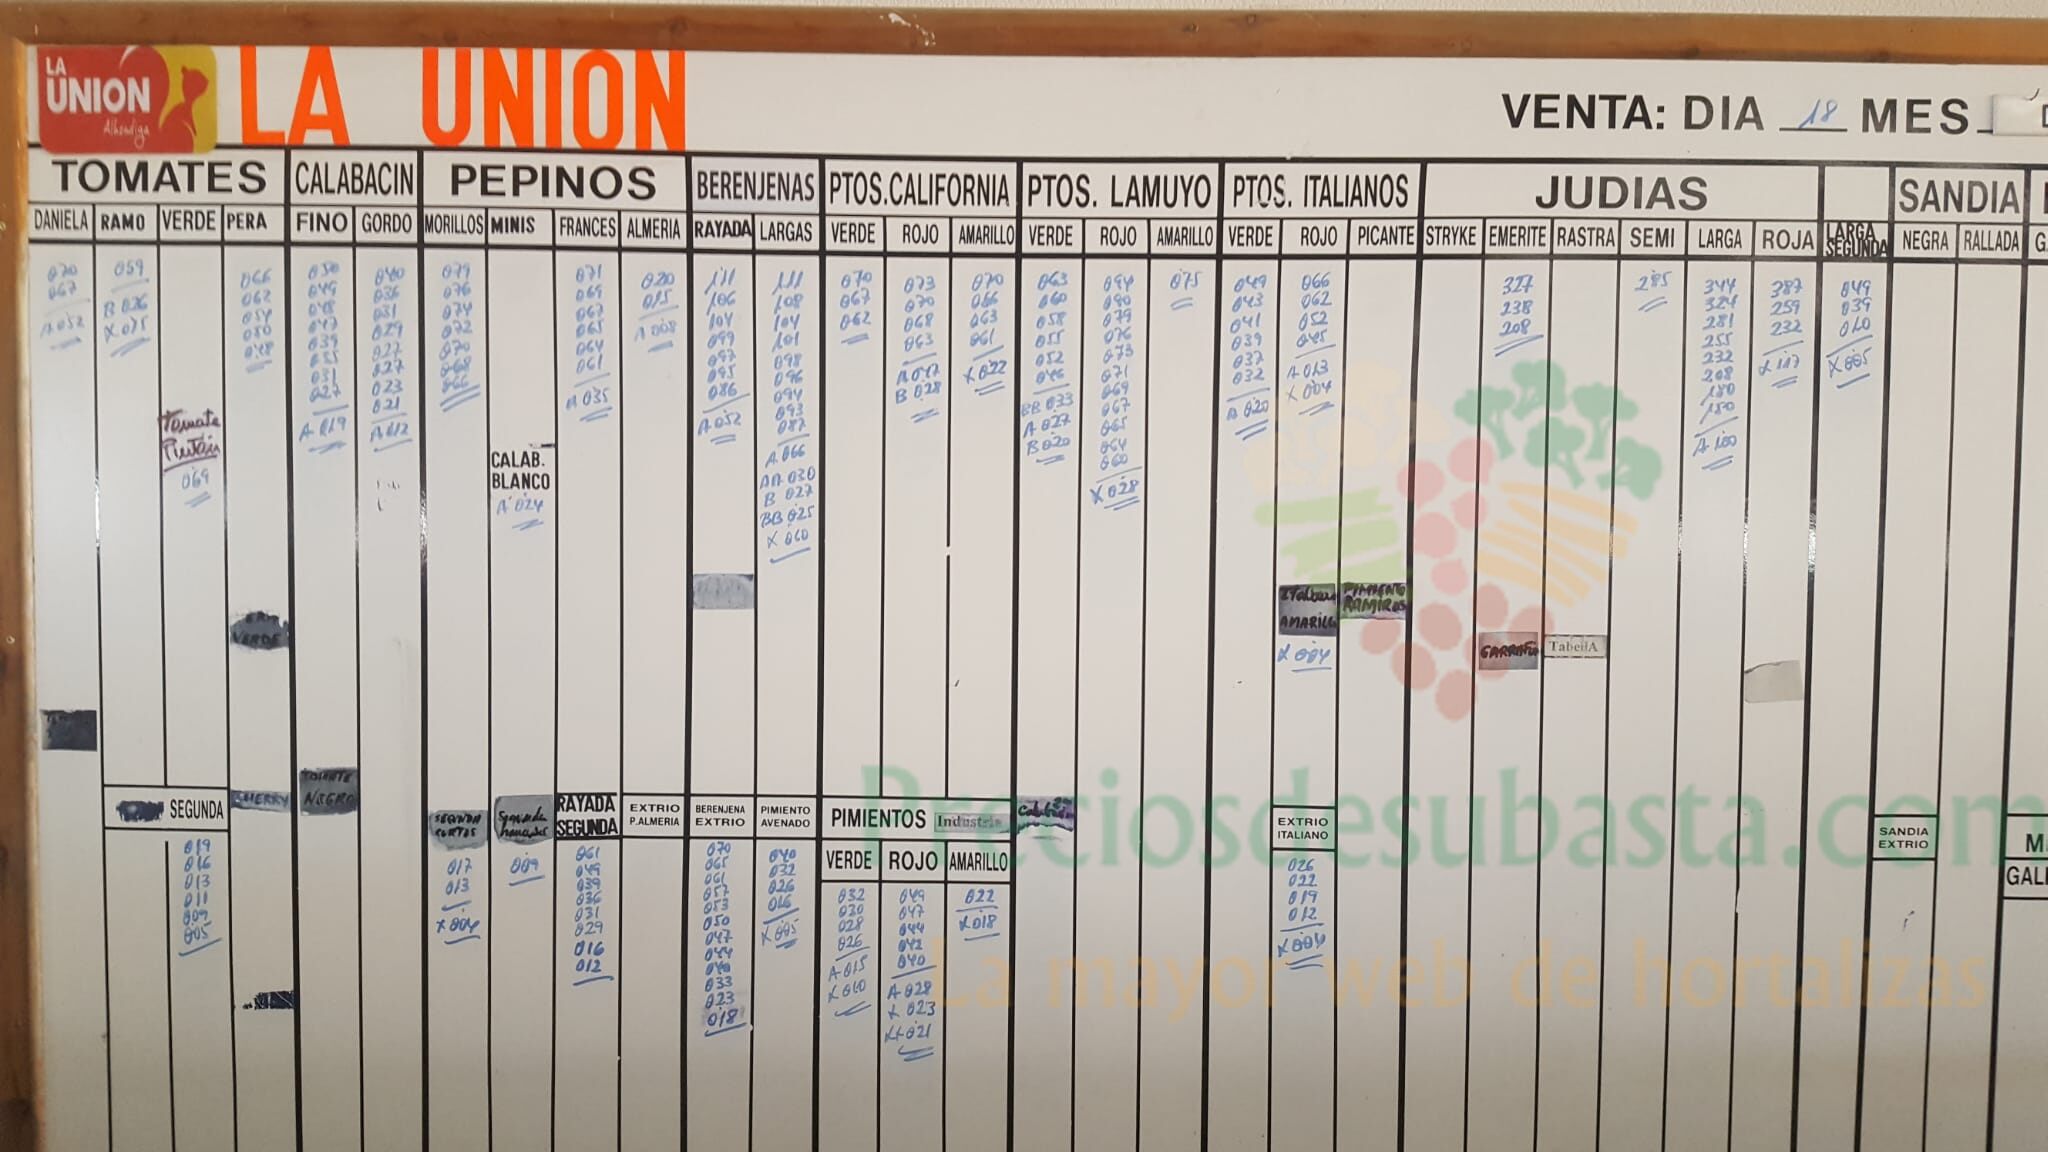 LA
UNION
Alhondiga
LA UNION
VENTA: DIA 18 MES
TOMATES CALABACIN PEPINOS BERENJENAS PTOS.CALIFORNIA PTOS. LAMUYO PTOS. ITALIANOS JUDIAS SANDIA
DANIELA RAMO VERDE PERA FINO GORDO MORILLOS MINIS FRANCES ALMERIA RAYADA LARGAS VERDE ROJO AMARILLO VERDE ROJO AMARILLO VERDE ROJO PICANTE STRYKE EMERITE RASTRA SEMI LARGA ROJA LARGA SEGUNDA NEGRA RALLADA
070
067
A 052
059
B 026
X 015
Tomate
069
066
062
054
050
048
050
049
048
047
039
035
031
027
A 019
040
036
031
029
027
027
023
021
A 012
079
076
074
072
070
068
066
CALAB.
BLANCO
A 024
071
069
067
065
064
061
A 035
020
015
A 008
111
106
104
099
097
095
086
A 052
111
108
104
101
098
096
094
093
087
A 066
AA 030
B 027
BB 025
X 060
070
067
062
073
070
068
063
A 047
B 028
070
066
063
061
X 022
063
060
058
055
052
046
BB 033
A 027
B 020
094
090
079
076
073
071
069
067
065
064
060
X 028
075
049
043
041
039
037
032
A 020
066
062
052
045
A 013
X 004
AMARILLO
X 004
PIMIENTO
RAMIROS
327
238
208
TabellA
285
344
324
281
255
232
208
180
150
A 100
387
259
232
X 117
049
039
010
X 005
VERDE
SEGUNDA
CHERRY
TOMATE
NEGRO
SEGUNDA
CORTOS
Segunda
RAYADA
SEGUNDA
EXTRIO
P.ALMERIA
BERENJENA
EXTRIO
PIMIENTO
AVENADO
PIMIENTOS Industria
VERDE ROJO AMARILLO
EXTRIO
ITALIANO
SANDIA
EXTRIO
019
016
013
011
009
005
017
013
X 004
009
061
049
039
036
031
029
016
012
070
065
061
057
053
050
047
044
040
033
023
018
040
032
026
016
X 005
032
030
028
026
A 015
X 010
049
047
044
042
040
A 028
X 023
XX 021
022
X 018
026
022
019
012
X 004
Preciosdesubasta.com
La mayor web de hortalizas